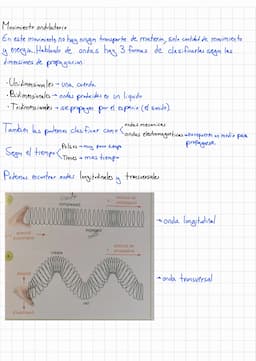 Movimiento ondulatorio
En este movimiento no hay ningún transporte de materia, solo cantidad de movimiento
y energía. Hablando de ondas hay 3 formas de clasificarlas según las
dimensiones de propagación.
· Unidimensionales → una cuerda.
· Bidimensionales → ondas producidas en un líquido
· Tridimensionales → se propagan por el espacio (el sonido).
También las podemos clasificar como
ondas mecánicas
ondas electromagnéticas → no requieren un medio para
propagarse.
Según el tiempo
Pulsos → muy poco tiempo
Trenes → más tiempo
Podemos encontrar ondas longitudinales y transversales
→ onda longitudinal
→ onda transversal